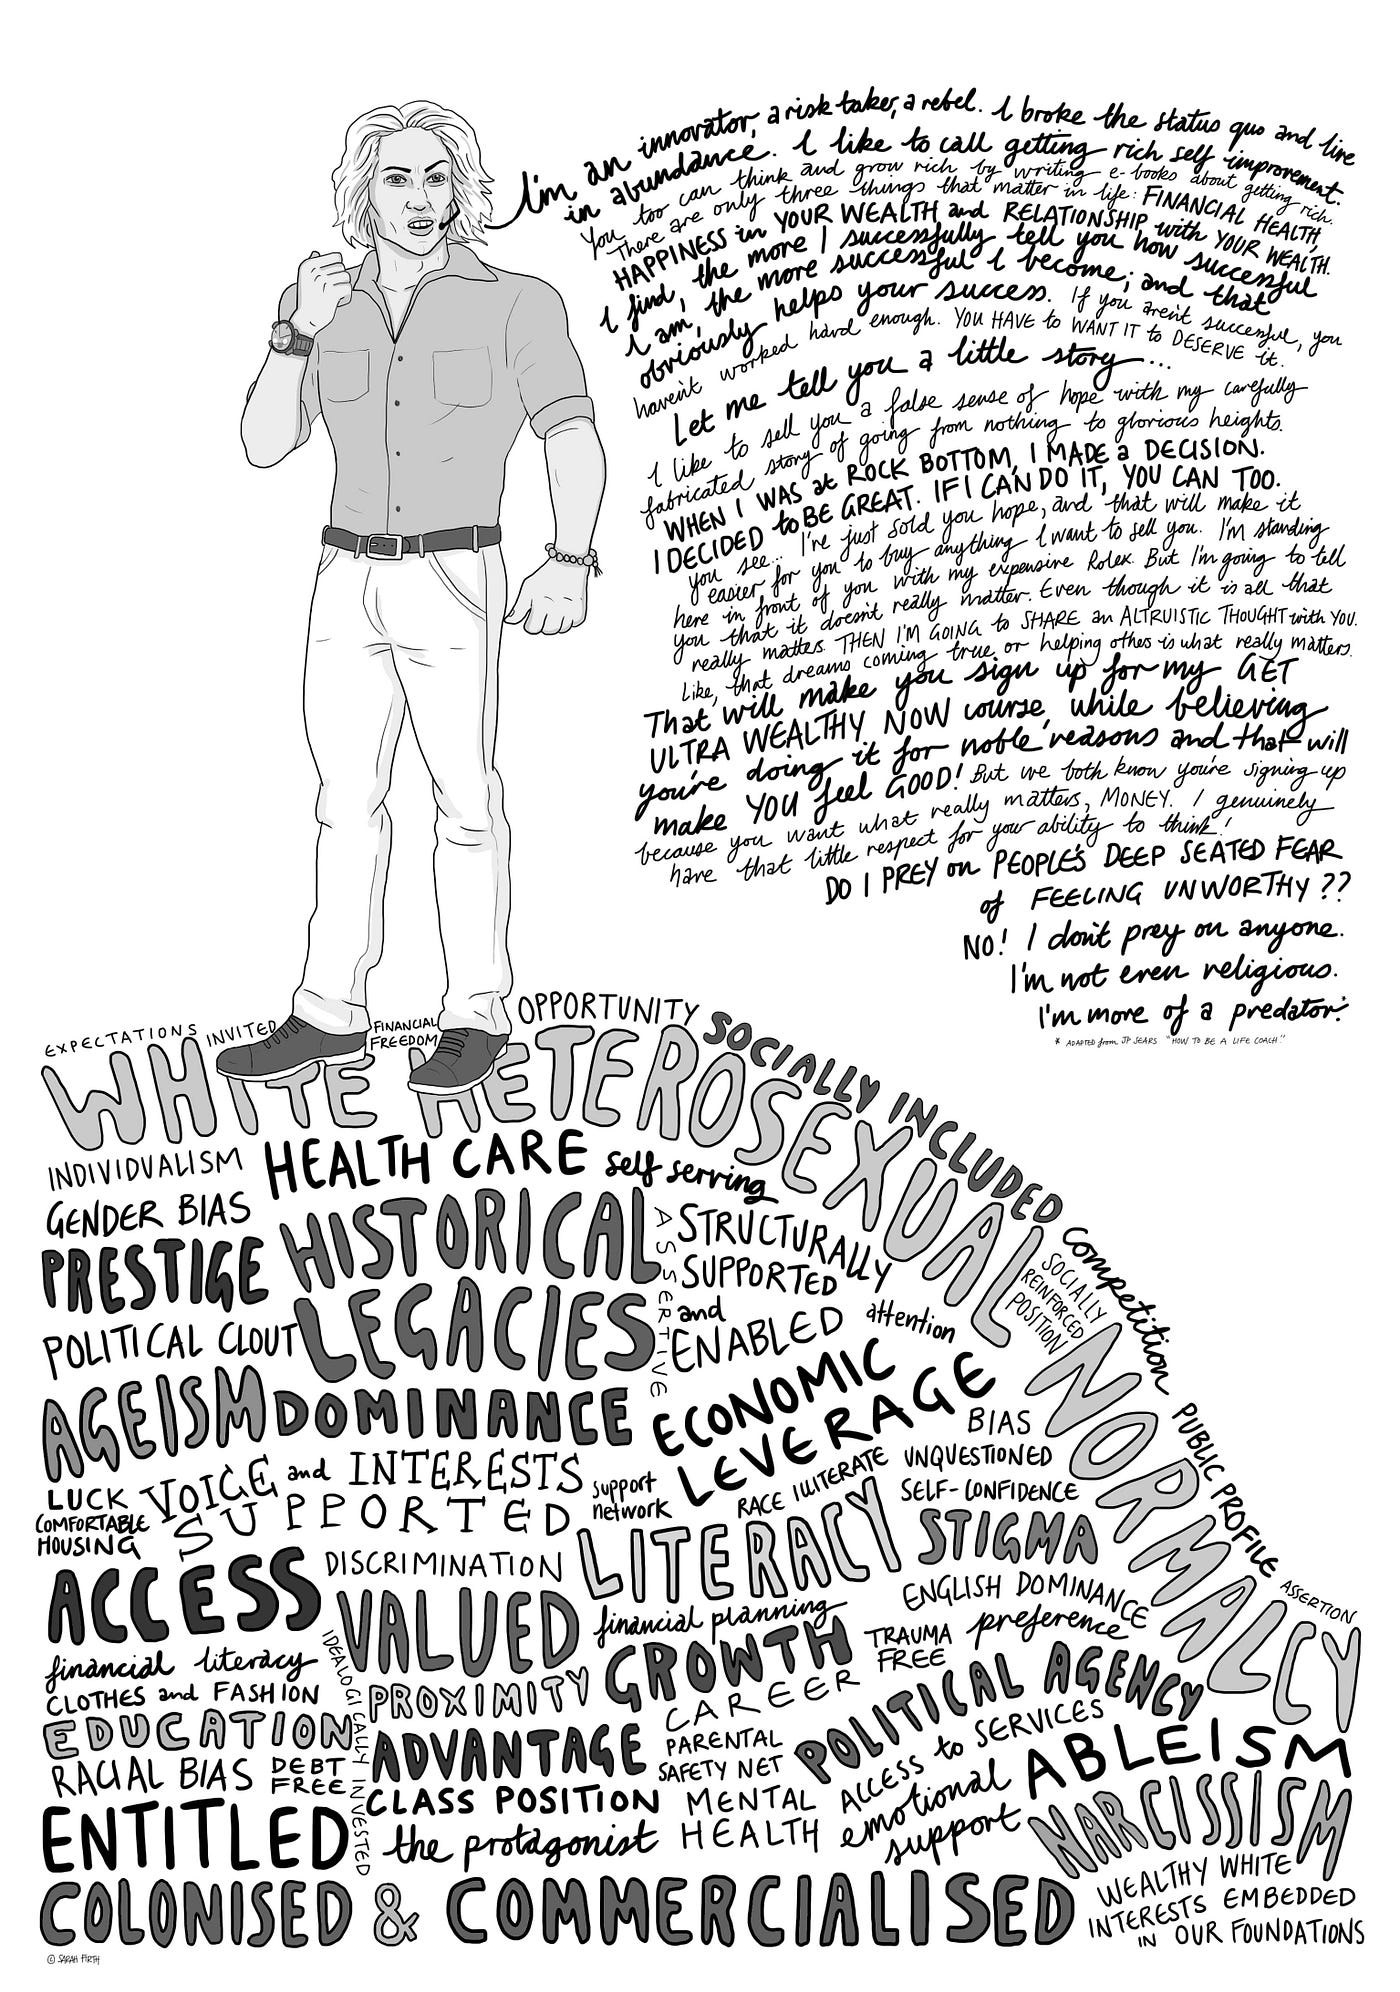 I'm an innovator, a risk taker, a rebel. I broke the status quo and live
in abundance. I like to call getting rich self improvement.
You too can think and grow rich by writing e-books about getting rich.
There are only three things that matter in life: FINANCIAL HEALTH,
HAPPINESS in YOUR WEALTH and RELATIONSHIP with YOUR WEALTH.
I find, the more I successfully tell you how successful
I am, the more successful I become; and that
obviously helps your success. If you aren't successful, you
haven't worked hard enough. YOU HAVE to WANT IT to DESERVE it.
Let me tell you a little story...
I like to sell you a false sense of hope with my carefully
fabricated story of going from nothing to glorious heights.
WHEN I WAS at ROCK BOTTOM, I MADE a DECISION.
I DECIDED to BE GREAT. IF I CAN DO IT, YOU CAN TOO.
you see... I've just sold you hope, and that will make it
easier for you to buy anything I want to sell you. I'm standing
here in front of you with my expensive Rolex. But I'm going to tell
you that it doesn't really matter. Even though it is all that
really matters. THEN I'M GOING to SHARE an ALTRUISTIC THOUGHT with YOU.
Like, that dreams coming true or helping othes is what really matters.
That will make you sign up for my GET
ULTRA WEALTHY NOW course, while believing
you're doing it for noble reasons and that will
make YOU feel GOOD! But we both know you're signing up
because you want what really matters, MONEY. I genuinely
have that little respect for your ability to think!
DO I PREY on PEOPLE'S DEEP SEATED FEAR
of FEELING UNWORTHY ??
NO! I don't prey on anyone.
I'm not even religious.
I'm more of a predator.*
* ADAPTED from JP SEARS "HOW TO BE A LIFE COACH"
EXPECTATIONS
INVITED
FINANCIAL
FREEDOM
OPPORTUNITY
SOCIALLY INCLUDED
competition
PUBLIC PROFILE
ASSERTION
WHITE HETEROSEXUAL
SOCIALLY
REINFORCED
POSITION
NORMALCY
INDIVIDUALISM
HEALTH CARE
self serving
GENDER BIAS
PRESTIGE
HISTORICAL
LEGACIES
ASSERTIVE
STRUCTURALLY
SUPPORTED
and
ENABLED
attention
POLITICAL CLOUT
AGEISM
DOMINANCE
ECONOMIC
LEVERAGE
BIAS
LUCK
VOICE and INTERESTS
SUPPORTED
support
network
RACE ILLITERATE
UNQUESTIONED
SELF-CONFIDENCE
COMFORTABLE
HOUSING
ACCESS
DISCRIMINATION
LITERACY
STIGMA
VALUED
financial planning
ENGLISH DOMINANCE
preference
financial literacy
IDEALOGICALLY INVESTED
GROWTH
TRAUMA
FREE
CLOTHES and FASHION
PROXIMITY
CAREER
POLITICAL AGENCY
EDUCATION
ADVANTAGE
PARENTAL
SAFETY NET
ACCESS to SERVICES
RACIAL BIAS
DEBT
FREE
CLASS POSITION
MENTAL
HEALTH
emotional
support
ABLEISM
ENTITLED
the protagonist
NARCISSISM
COLONISED & COMMERCIALISED
WEALTHY WHITE
INTERESTS EMBEDDED
IN OUR FOUNDATIONS
© SARAH FIRTH